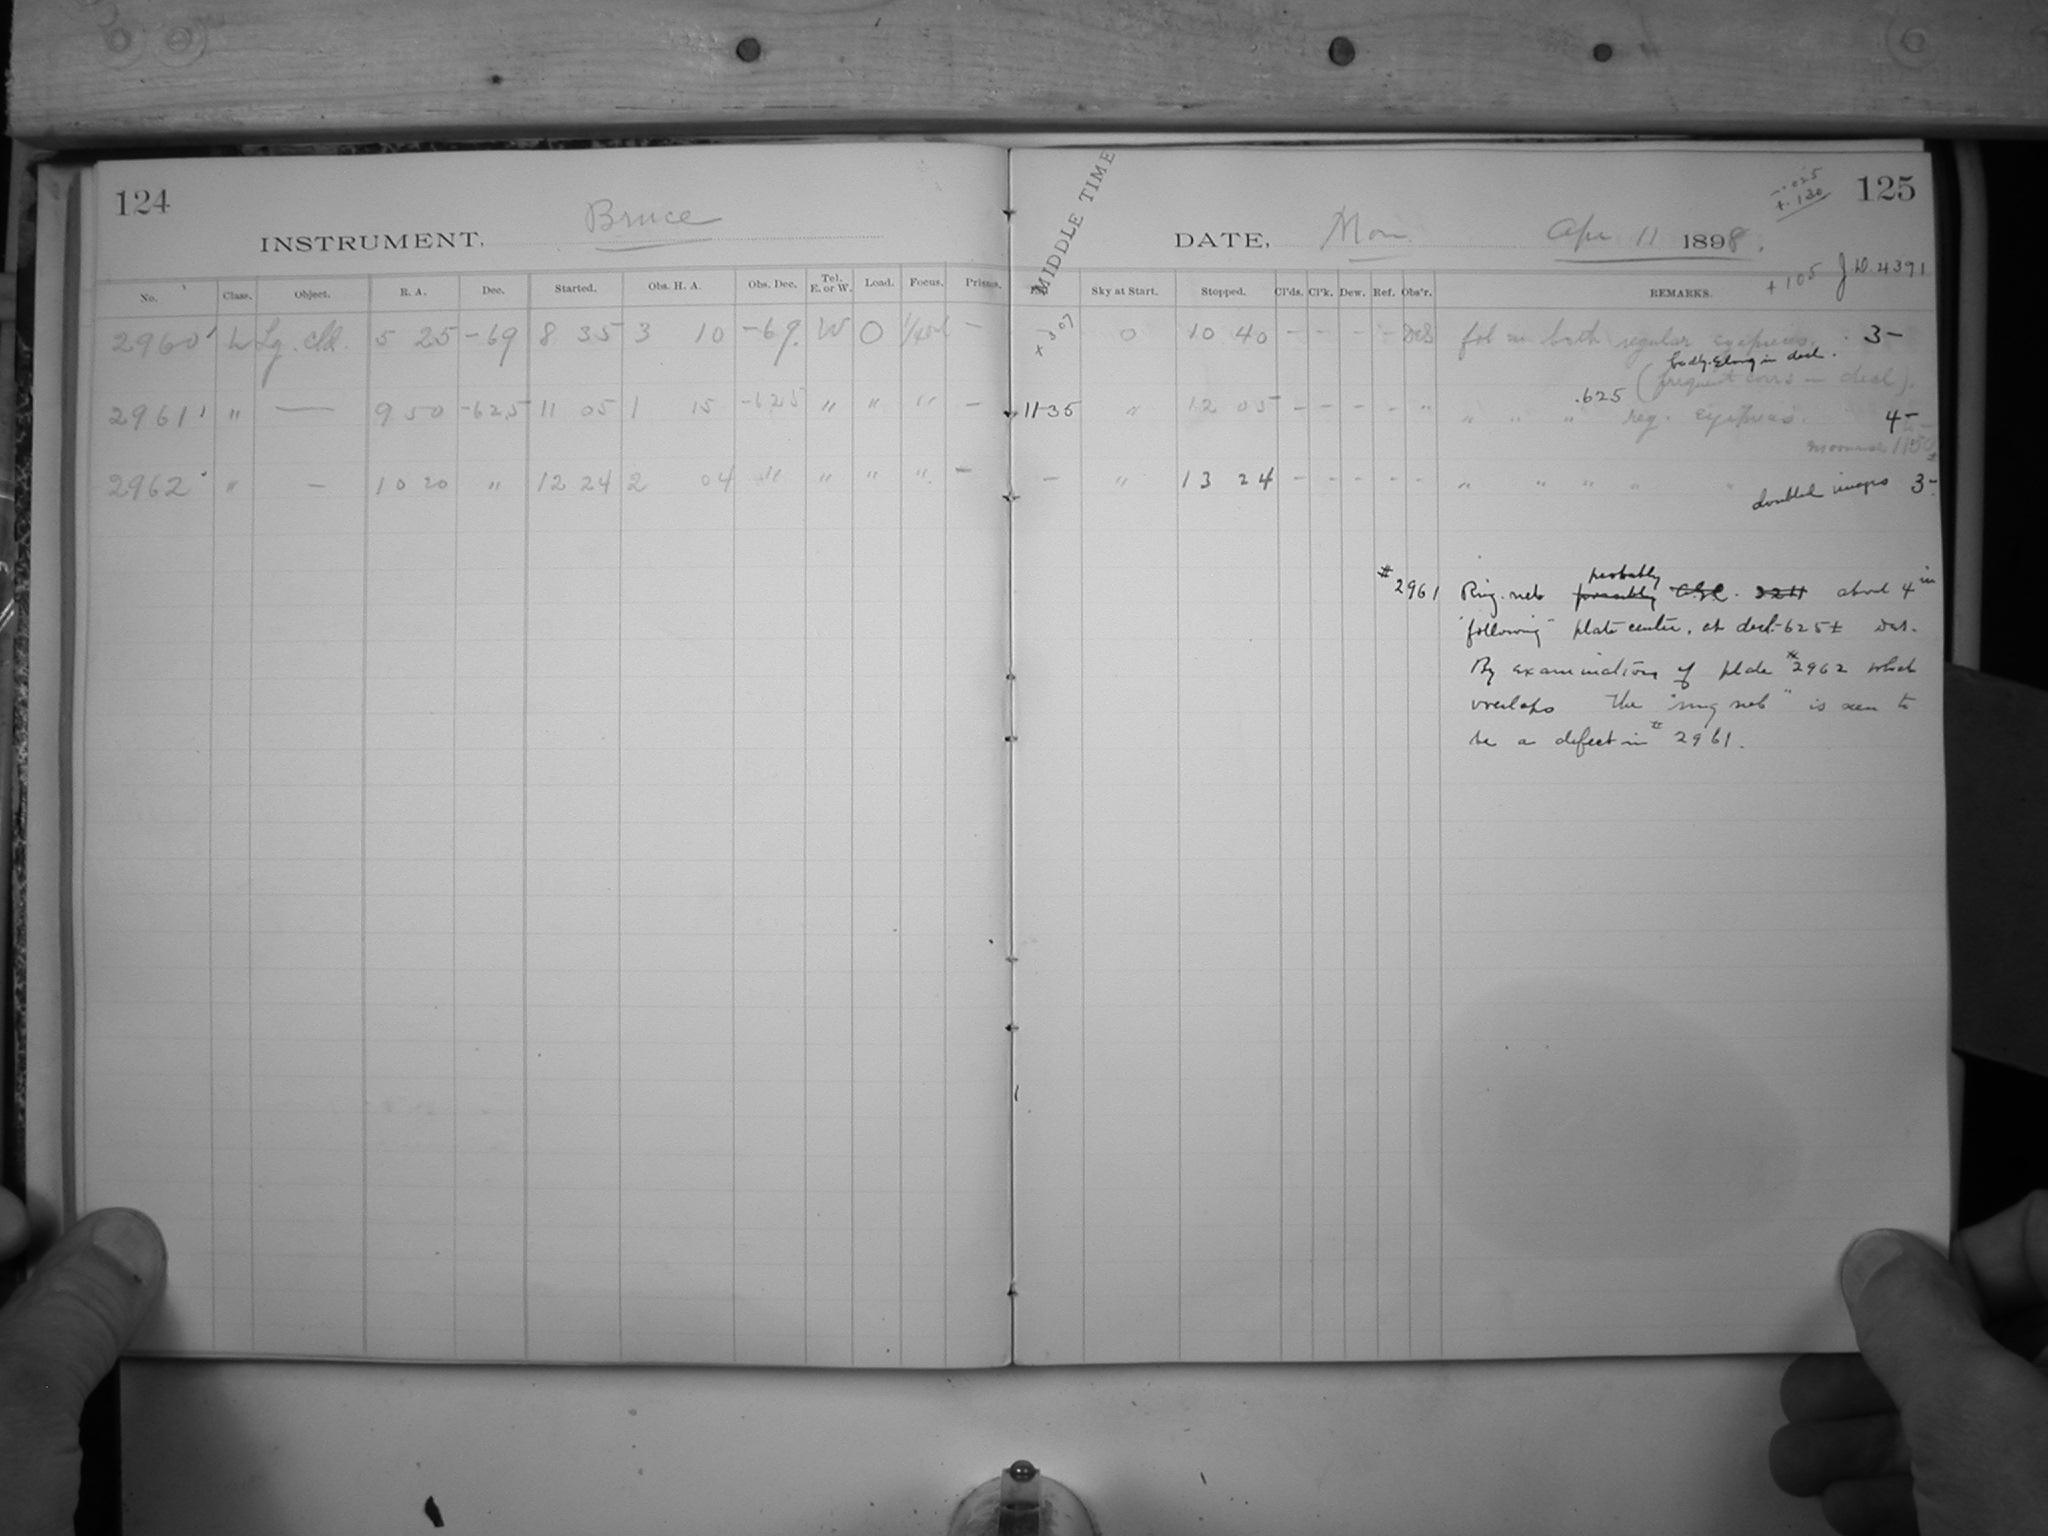 124
INSTRUMENT, Bruce
No. Class. Object. R. A. Dec. Started. Obs. H. A. Obs. Dec. Tel. E. or W. Load. Focus. Prisms.
2960 L Lg. cld. 5 25 -69 8 35 3 10 -69. W 0 -
2961 " — 9 50 -625 11 05 1 15 -625 " " " -
2962 " - 10 20 " 12 24 2 04 " " " " -
MIDDLE TIME
-.025
+.130
125
DATE, Mon Apr 11 1898.
+105 J.D. 4391
Sky at Start. Stopped. Cl'ds. Cl'k. Dew. Ref. Obs'r. REMARKS.
+307 0 10 40 - - - - fol in both regular eyepieces. 3-
badly elong in decl.
(frequent corrs in decl).
.625
11-35 " 12 05 - - - - " " " " reg. eyepieces. 4-
moonrise 1150
- " 13 24 - - - - - " " " " "
doubled images 3-
#2961 Ring neb probably possibly 3211 about 4 in
"following" plate center, at decl. -625±
By examination of plate #2962 which
overlaps the "ring neb" is seen to
be a defect in #2961.